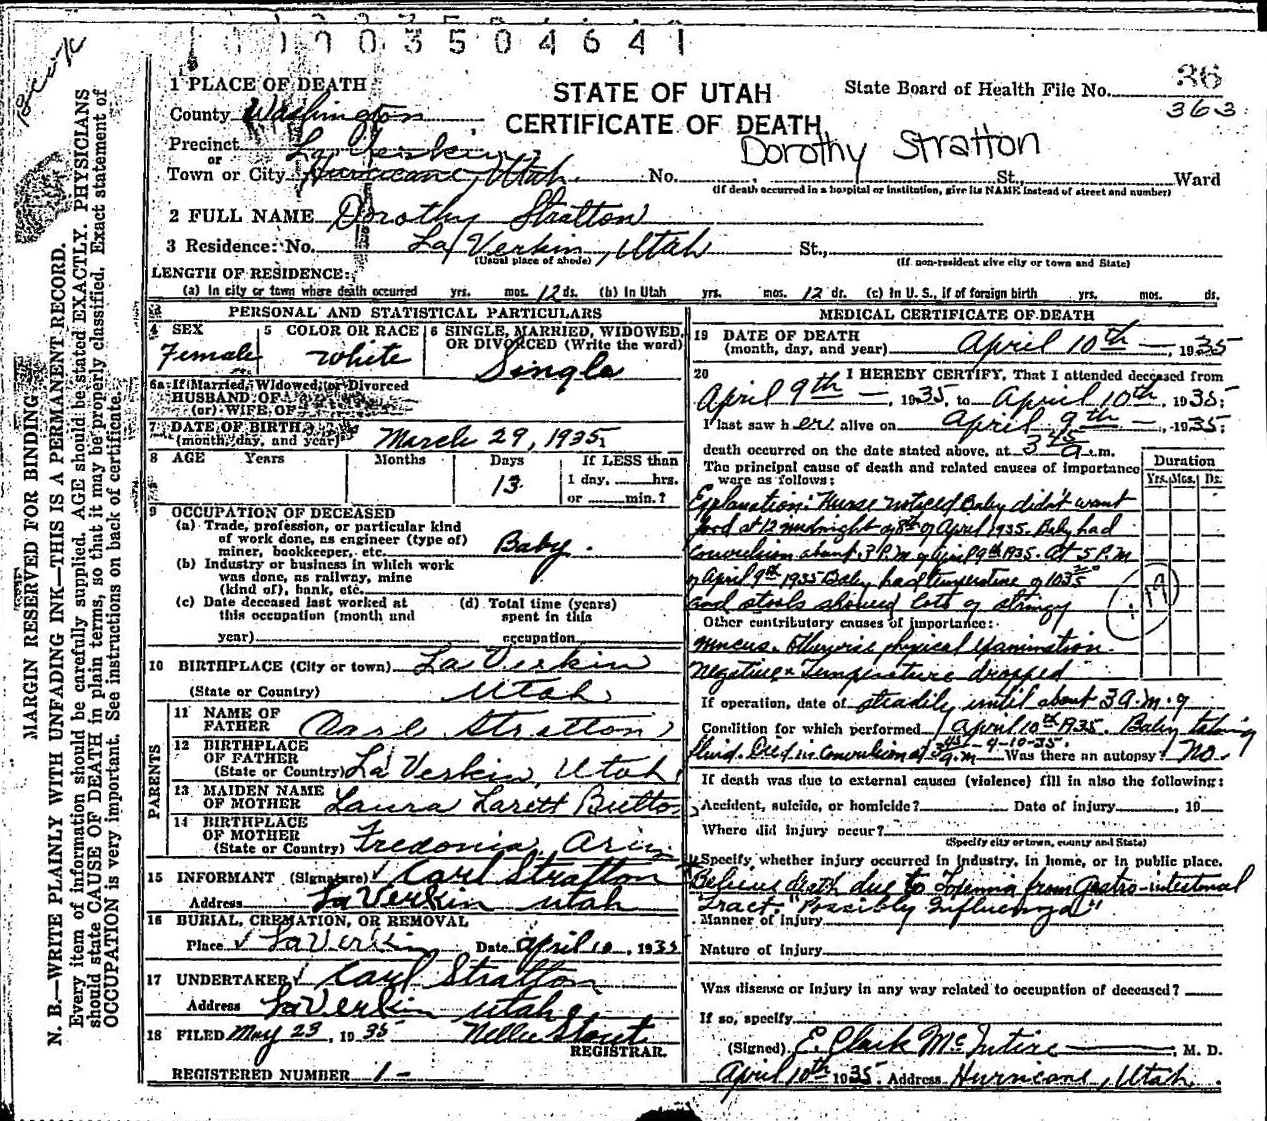 1 1003504641
36
363
1 PLACE OF DEATH
STATE OF UTAH
CERTIFICATE OF DEATH
State Board of Health File No.
County Washington
Dorothy Stratton
Precinct La Verkin
or
Town or City Hurricane, Utah. No. St., Ward
(If death occurred in a hospital or institution, give its NAME instead of street and number)
2 FULL NAME Dorothy Stratton
3 Residence: No. La Verkin, Utah St.,
(Usual place of abode) (If non-resident give city or town and State)
LENGTH OF RESIDENCE:
(a) In city or town where death occurred yrs. mos. 12 ds. (b) In Utah yrs. mos. 12 ds. (c) In U. S., if of foreign birth yrs. mos. ds.
PERSONAL AND STATISTICAL PARTICULARS
4 SEX 5 COLOR OR RACE 6 SINGLE, MARRIED, WIDOWED, OR DIVORCED (Write the word)
Female White Single
6a If Married, Widowed, or Divorced
HUSBAND OF
(or) WIFE OF
7 DATE OF BIRTH
(month, day, and year) March 29, 1935
8 AGE Years Months Days If LESS than
13 1 day, hrs.
or min.?
9 OCCUPATION OF DECEASED
(a) Trade, profession, or particular kind
of work done, as engineer (type of)
miner, bookkeeper, etc. Baby.
(b) Industry or business in which work
was done, as railway, mine
(kind of), bank, etc.
(c) Date deceased last worked at
this occupation (month and
year)
(d) Total time (years)
spent in this
occupation
10 BIRTHPLACE (City or town) La Verkin
(State or Country) Utah
PARENTS
11 NAME OF
FATHER Carl Stratton
12 BIRTHPLACE
OF FATHER
(State or Country) La Verkin, Utah.
13 MAIDEN NAME
OF MOTHER Laura Larett Button
14 BIRTHPLACE
OF MOTHER
(State or Country) Fredonia, Ariz
15 INFORMANT (Signature) Carl Stratton
Address La Verkin Utah
16 BURIAL, CREMATION, OR REMOVAL
Place La Verkin Date April 10, 1935
17 UNDERTAKER Carl Stratton
Address La Verkin Utah
18 FILED May 23, 1935 Nellie Stout
REGISTRAR.
REGISTERED NUMBER 1-
MEDICAL CERTIFICATE OF DEATH
19 DATE OF DEATH
(month, day, and year) April 10th - , 1935
20 I HEREBY CERTIFY, That I attended deceased from
April 9th - , 1935, to April 10th, 1935;
I last saw her alive on April 9th - , 1935;
death occurred on the date stated above, at 3 45 a.m.
The principal cause of death and related causes of importance
were as follows:
Duration
Yrs. Mos. Ds.
Explanation: Nurse noticed Baby didn't want
food at 12 midnight of 8th of April 1935. Baby had
convulsion about 3 P.M. of April 9th 1935. At 5 P.M.
of April 9th 1935 Baby had temperature of 103
and stools showed lots of stringy
Other contributory causes of importance:
mucus. Otherwise physical examination
negative. Temperature dropped
If operation, date of steadily until about 3 A.M. of
Condition for which performed April 10th 1935. Baby taking
fluid. Died in convulsion at 3 45 a.m - 4-10-35. Was there an autopsy? No.
If death was due to external causes (violence) fill in also the following:
Accident, suicide, or homicide? Date of injury , 19
Where did injury occur?
(Specify city or town, county and State)
Specify whether injury occurred in industry, in home, or in public place.
Believe death due to Toxemia from Gastro-intestional
Tract, "Possibly Influenza"
Manner of injury
Nature of injury
Was disease or injury in any way related to occupation of deceased?
If so, specify
(Signed) E. Clark McIntire , M. D.
April 10th 1935. Address Hurricane, Utah.
MARGIN RESERVED FOR BINDING
N. B.—WRITE PLAINLY WITH UNFADING INK—THIS IS A PERMANENT RECORD.
Every item of information should be carefully supplied. AGE should be stated EXACTLY. PHYSICIANS
should state CAUSE OF DEATH in plain terms, so that it may be properly classified. Exact statement of
OCCUPATION is very important. See instructions on back of certificate.